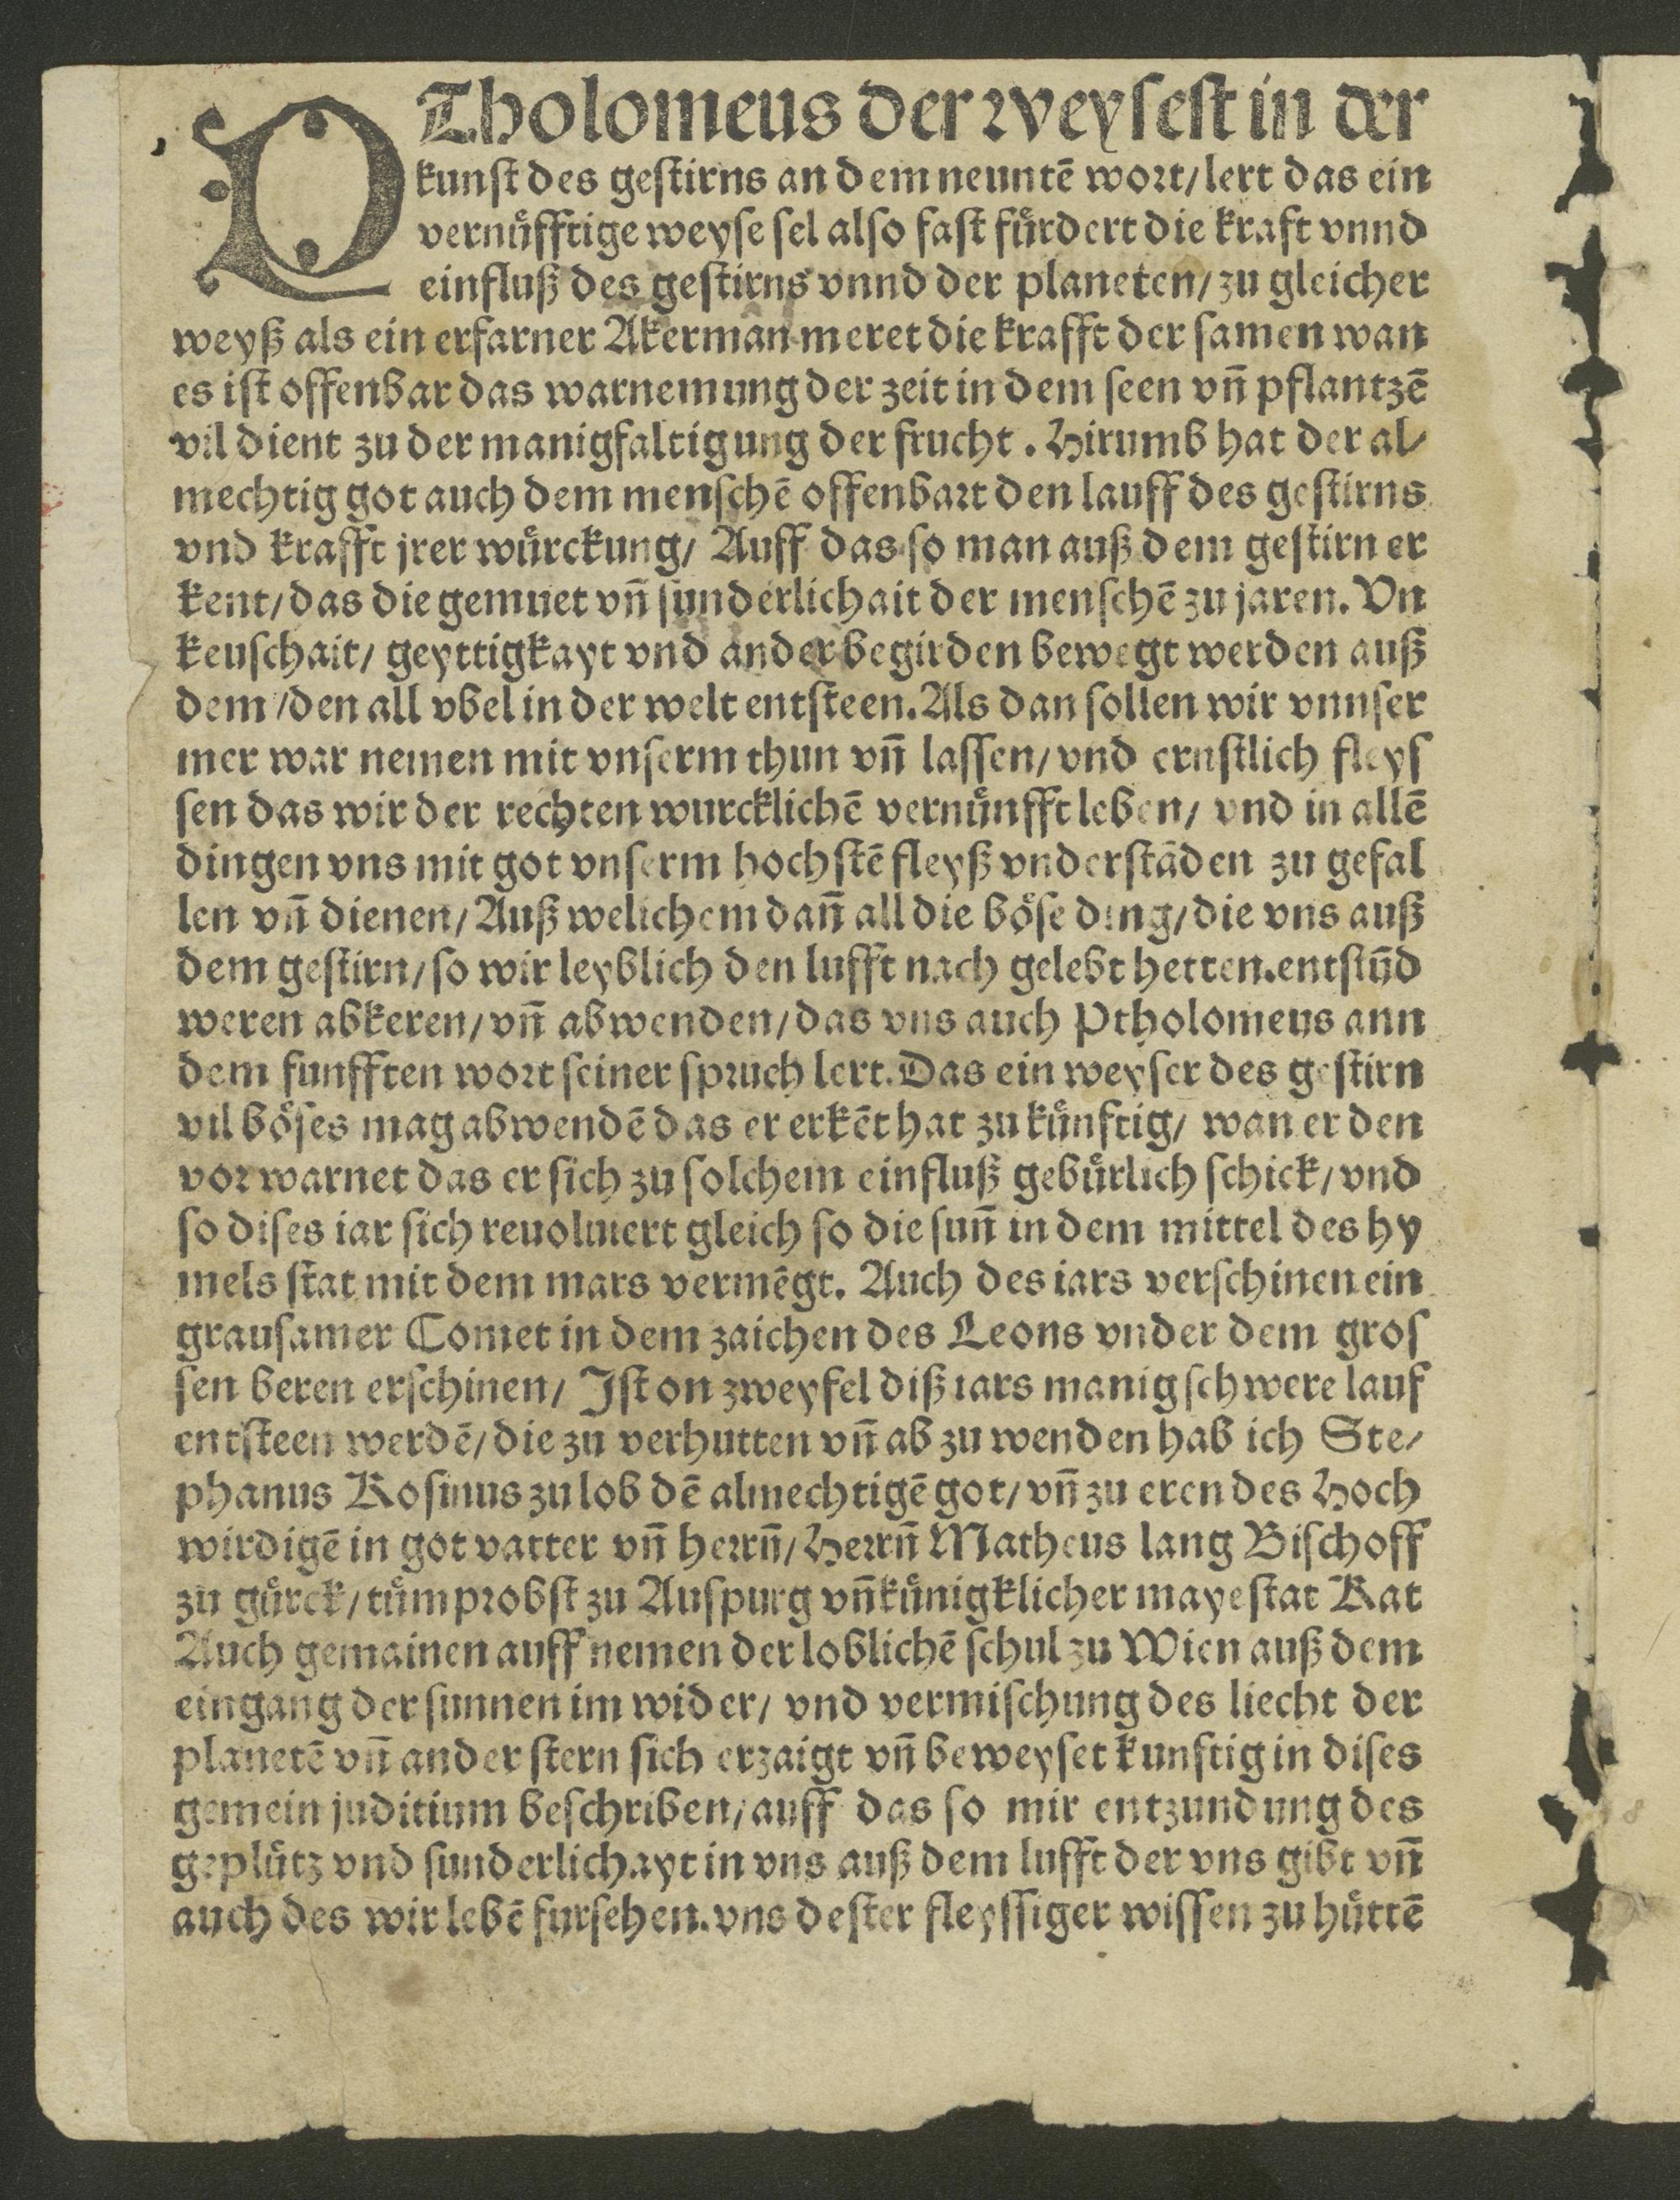 PTholomeus der weysest in der
kunst des gestirns an dem neuntē wort/lert das ein
vernuͤfftige weyse sel also fast fuͤrdert die kraft vnnd
einfluß des gestirns vnnd der planeten/zu gleicher
weyß als ein erfarner Akerman meret die krafft der samen wan
es ist offenbar das warnemung der zeit in dem seen vn̄ pflantzē
vil dient zu der manigfaltigung der frucht. Hirumb hat der al/
mechtig got auch dem menschē offenbart den lauff des gestirns
vnd krafft jrer wuͤrckung/ Auff das so man auß dem gestirn er
kent/das die gemuet vn̄ sunderlichait der menschē zu jaren. Vn
keuschait/ geyttigkayt vnd ander begirden bewegt werden auß
dem/den all vbel in der welt entsteen. Als dan sollen wir vnnser
mer war nemen mit vnserm thun vn̄ lassen/vnd ernstlich fleys
sen das wir der rechten wurcklichē vernuͤnfft leben/ vnd in allē
dingen vns mit got vnserm hochstē fleyß vnderstāden zu gefal
len vn̄ dienen/Auß welichem dan̄ all die boͤse ding/die vns auß
dem gestirn/so wir leyblich den lufft nach gelebt hetten.entstūd
weren abkeren/vn̄ abwenden/das vns auch Ptholomeus ann
dem funfften wort seiner spruch lert. Das ein weyser des gestirn
vil boͤses mag abwendē das er erkēt hat zu kuͤnftig/ wan er den
vor warnet das er sich zu solchem einfluß gebuͤrlich schick/vnd
so dises iar sich reuoluiert gleich so die sun̄ in dem mittel des hy
mels stat mit dem mars vermēgt. Auch des iars verschinen ein
grausamer Comet in dem zaichen des Leons vnder dem gros
sen beren erschinen/ Ist on zweyfel diß iars manig schwere lauf
entsteen werdē/die zu verhutten vn̄ ab zu wenden hab ich Ste/
phanus Rosinus zu lob dē almechtigē got/vn̄ zu eren des Hoch
wirdigē in got vatter vn̄ herrn̄/Herrn̄ Matheus lang Bischoff
zu guͤrck/tuͤmprobst zu Auspurg vn̄ kuͤnigklicher mayestat Rat
Auch gemainen auff nemen der loblichē schul zu Wien auß dem
eingang der sunnen im wider/ vnd vermischung des liecht der
planetē vn̄ ander stern sich erzaigt vn̄ beweyset kunftig in dises
gemein juditium beschriben/auff das so mir entzundung des
gepluͤtz vnd sunderlichayt in vns auß dem lufft der vns gibt vn̄
auch des wir lebē fursehen.vns dester fleyssiger wissen zu huͤttē